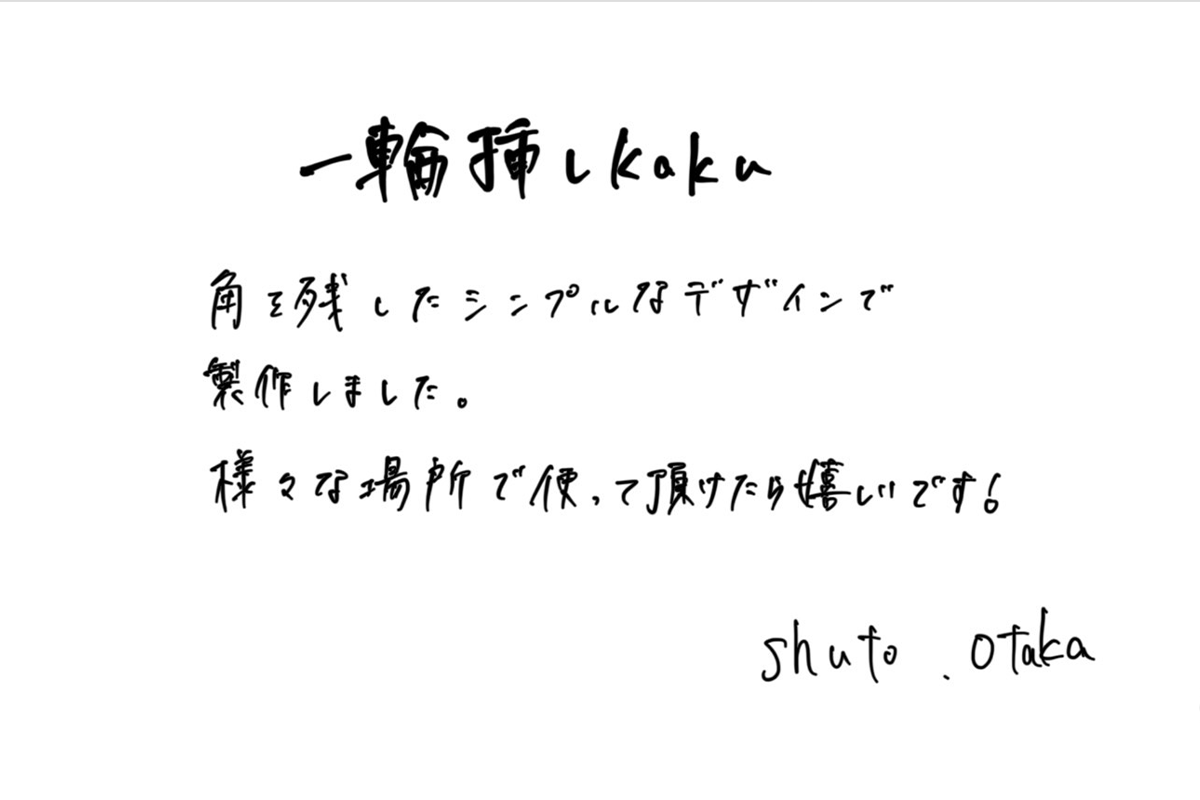 一輪挿しkaku
角を残したシンプルなデザインで
製作しました。
様々な場所で使って頂けたら嬉しいです!
shuto.otaka